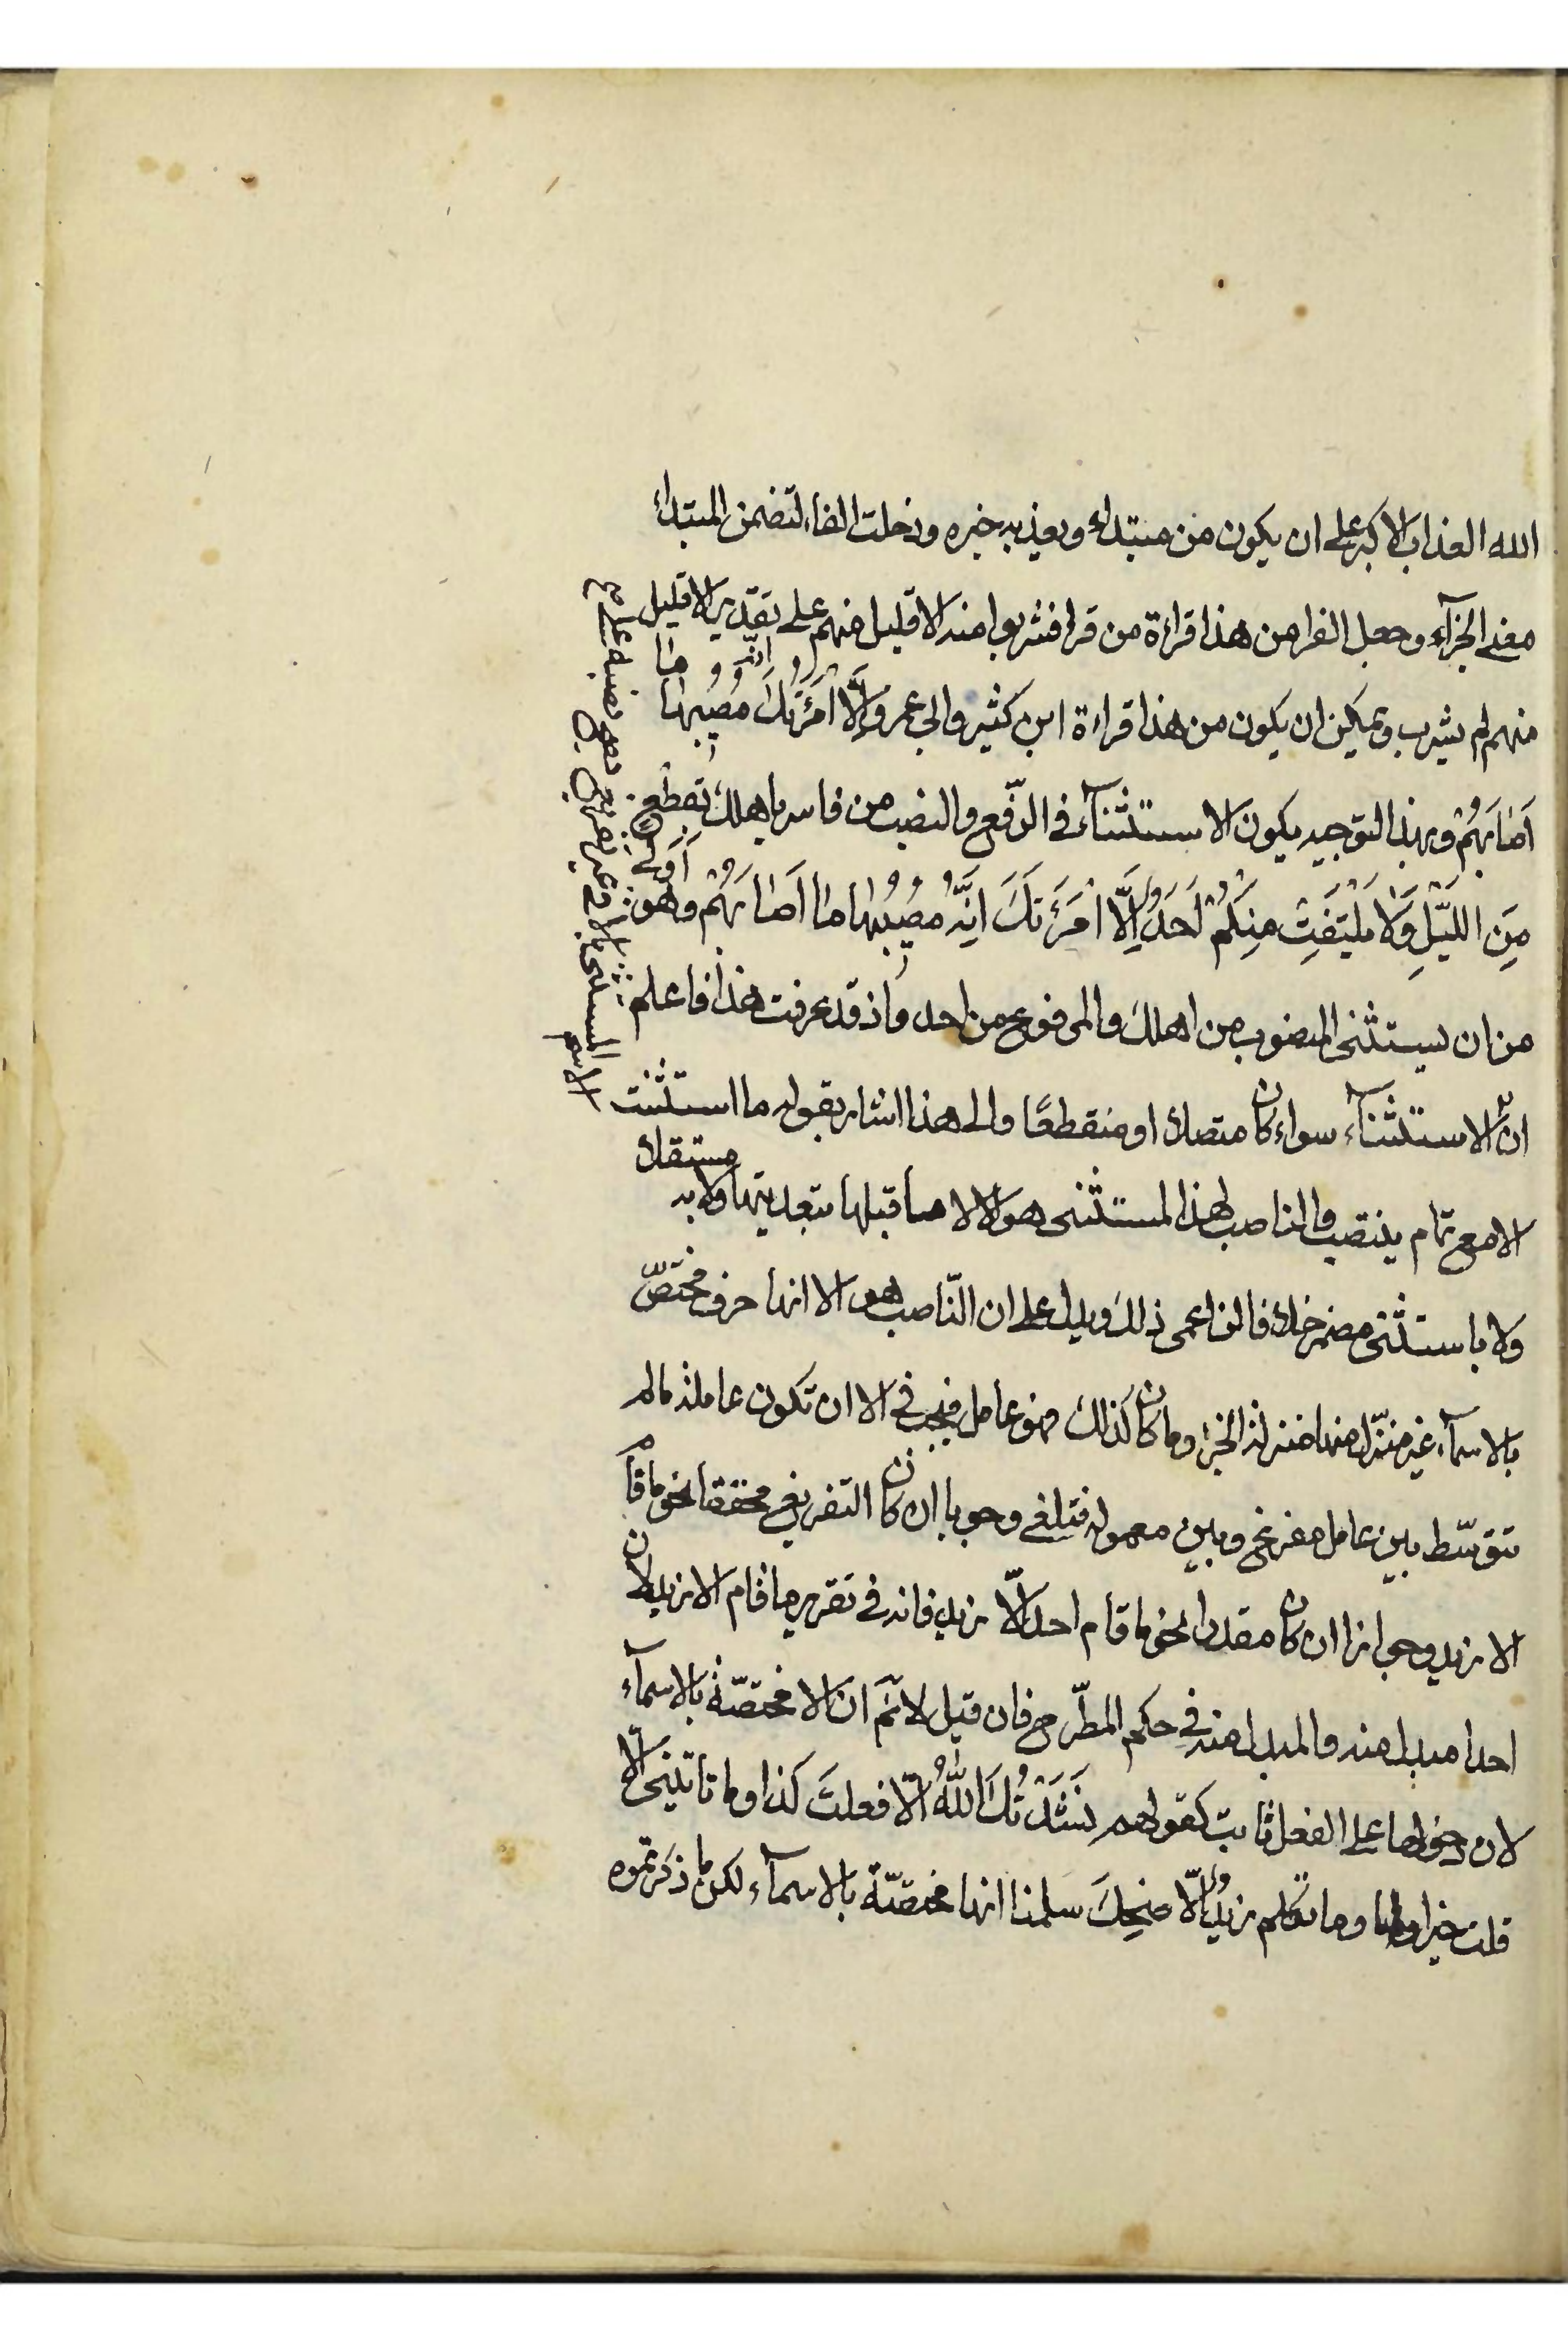 الله العذاب الاكبر على ان يكون من مبتداء ويعذبه خبره ودخلت الفاء لتضمن المبتداء
معنى الجزآء وجعل الفرا من هذا قراءة من قرا فشربوا منه الا قليل منهم على تقدير الا قليل
منهم لم يشرب ويمكن ان يكون من هذا قراءة ابن كثير وابي عمرو اِلَّا امْرَأَتُكَ اِنَّهُ مُصِيبُهَا مَا
اَصَابَهُمْ وبهذا التوجيه يكون الاستثنآء في الرّفع والنصب من فاسر باهلك بقطع
مِنَ اللَّيْلِ وَلَا يَلْتَفِتْ مِنْكُمْ اَحَدٌ اِلَّا امْرَأَتَكَ اِنَّهُ مُصِيبُهَا مَا اَصَابَهُمْ وهو اَولى
من ان يستثنى المنصوب من اهلك والمرفوع من احد واذ قد عرفت هذا فاعلم
انّ الاستثنآء سواء كان متصلا او منقطعًا والى هذا اشار بقوله ما استثنت
الا مع تمام ينتصب والناصب لهذا المستثنى هو الا لا ما قبلها بتعديتها ولا به مستقلا
ولا باستثنى مضمر خلافا لزاعمى ذلك ودليل على ان النّاصب هو الا انها حرف مختصّ
بالاسمآء غير منزّل منها منزلة الجزء وما كان كذلك فهو عامل فيجب في الا ان تكون عاملة ما لم
تتوسّط بين عامل مفرغ وبين معموله فتلغى وجوبا ان كان التفريغ محققا نحو ما قام
الا زيد وجوازا ان كان مقدرا نحو ما قام احد الّا زيد فانه في تقدير ما قام الا زيد لان
احدا مبدل منه والمبدل منه في حكم المطّرح فان قيل لا نَم ان الا مختصّة بالاسمآء
لان دخولها على الفعل ثابت كقولهم نَشَدْتُكَ اللّٰهَ الّا فعلتَ كذا وما تاتينى الّا
قلت خيرا وما تكلم زيدٌ الّا ضحِكَ سلمنا انها مختصّة بالاسمآء لكن ما ذكرتموه